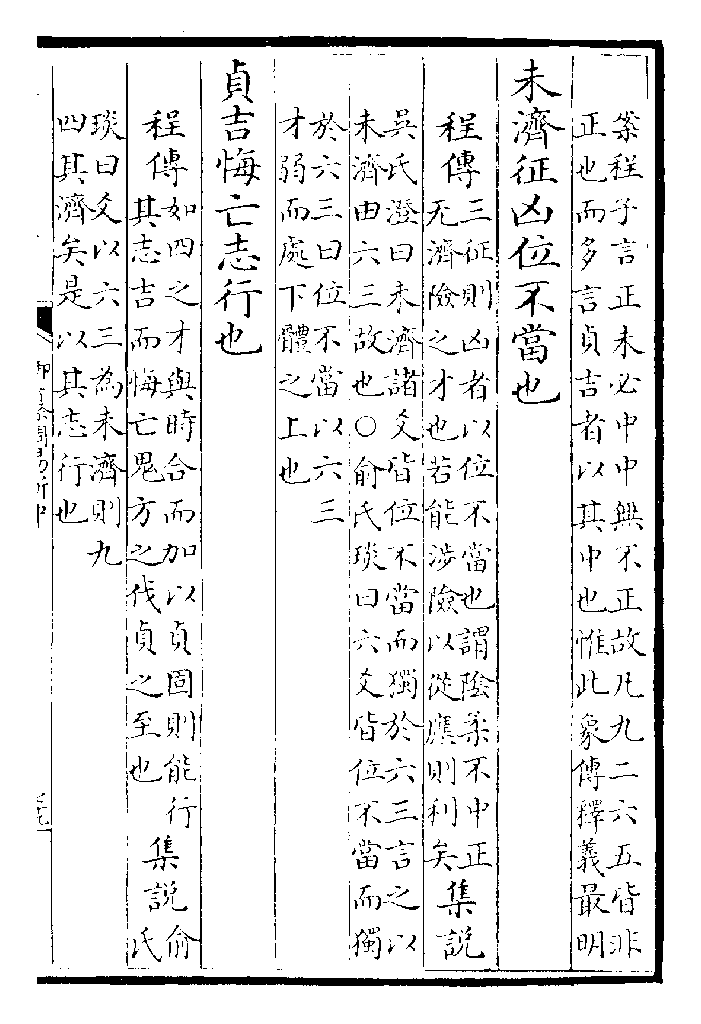 案程子言正未必中中無不正故凡九二六五皆非
正也而多言貞吉者以其中也惟此象傳釋義最明
未濟征凶位不當也
程傳三征則凶者以位不當也謂陰柔不中正
无濟險之才也若能涉險以從應則利矣集說
吳氏澄曰未濟諸爻皆位不當而獨於六三言之以
未濟由六三故也○俞氏琰曰六爻皆位不當而獨
於六三曰位不當以六三
才弱而處下體之上也
貞吉悔亡志行也
程傳如四之才與時合而加以貞固則能行
其志吉而悔亡鬼方之伐貞之至也集說俞氏
琰曰爻以六三為未濟則九
四其濟矣是以其志行也
御纂周易折中